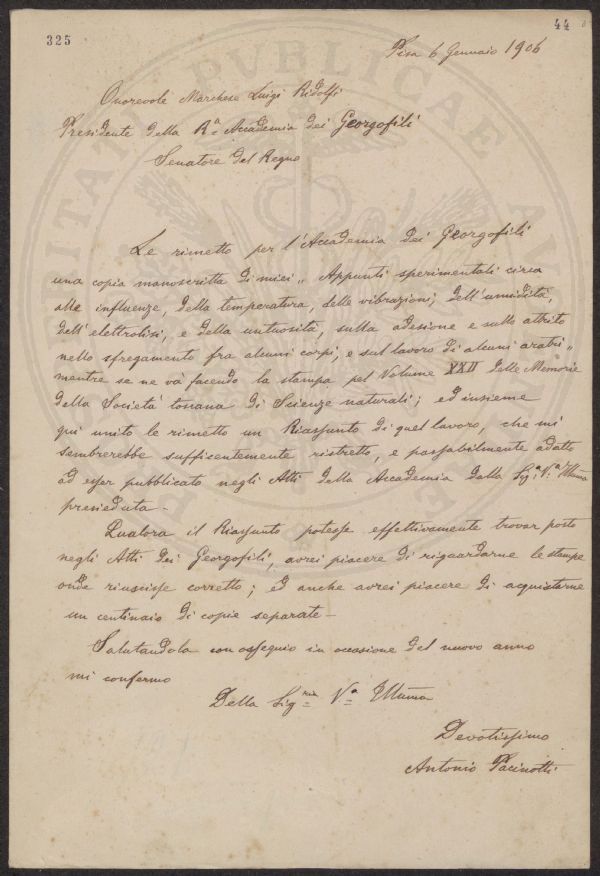 325
44
Pisa 6 Gennaio 1906
Onorevole Marchese Luigi Ridolfi
Presidente della Rª Accademia dei Georgofili
Senatore del Regno
Le rimetto per l'Accademia dei Georgofili
una copia manoscritta di miei „ Appunti sperimentali circa
alle influenze, della temperatura, delle vibrazioni, dell'umidità,
dell'elettrolisi, e della untuosità, sulla adesione e sullo attrito
nello sfregamento fra alcuni corpi, e sul lavoro di alcuni aratri „
mentre se ne và facendo la stampa pel Volume XXII delle Memorie
della Società toscana di Scienze naturali; ed insieme
qui unito le rimetto un Riassunto di quel lavoro, che mi
sembrerebbe sufficentemente ristretto, e passabilmente adatto
ad esser pubblicato negli Atti della Accademia dalla Sigª Vª Illuma
presieduta -
Qualora il Riassunto potesse effettivamente trovar posto
negli Atti dei Georgofili, avrei piacere di riguardarne le stampe
onde riuscisse corretto; ed anche avrei piacere di acquistarne
un centinaio di copie separate -
Salutandola con ossequio in occasione del nuovo anno
mi confermo
Della Sigria Vª Illuma
Devotissimo
Antonio Pacinotti
PVBLICAE